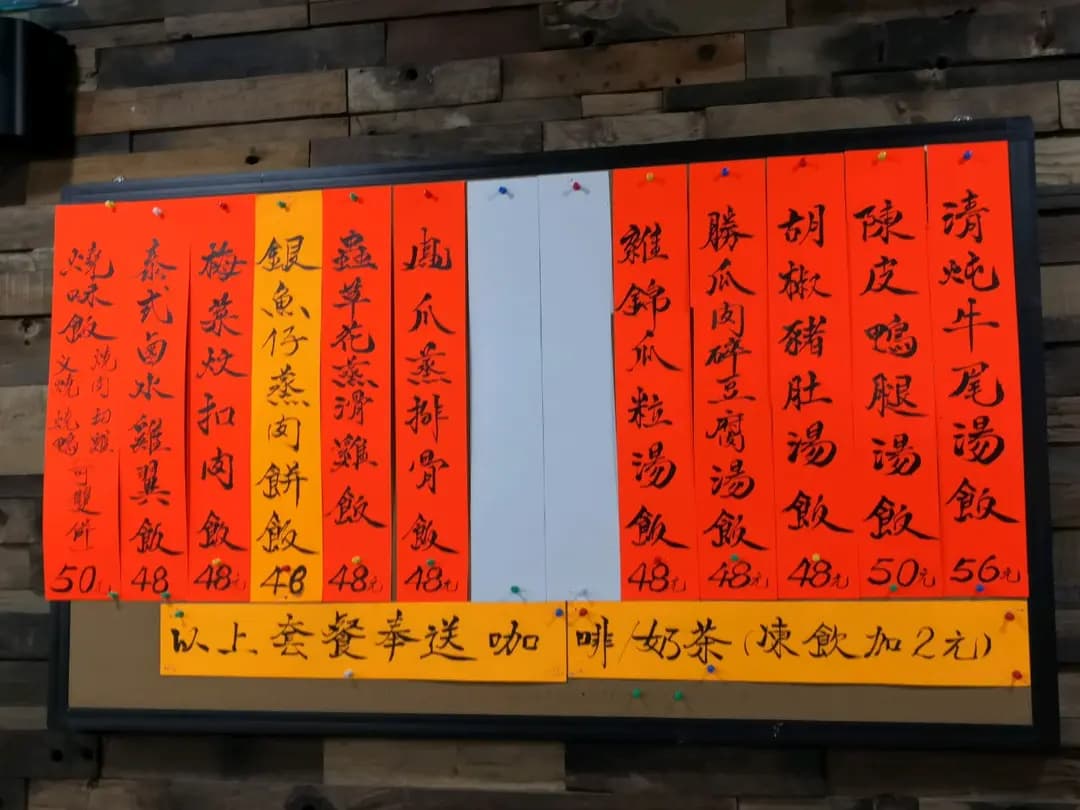 清炖牛尾湯飯 56元
陳皮鴨腿湯飯 50元
胡椒豬肚湯飯 48元
勝瓜肉碎豆腐湯飯 48元
雜錦瓜粒湯飯 48元
鳳爪蒸排骨飯 48元
蟲草花蒸滑雞飯 48元
銀魚仔蒸肉餅飯 48
梅菜炆扣肉飯 48元
泰式卤水雞翼飯 48
燒味飯
燒肉 切雞
叉燒 燒鴨
可雙併
50元
以上套餐奉送咖啡/奶茶(凍飲加2元)